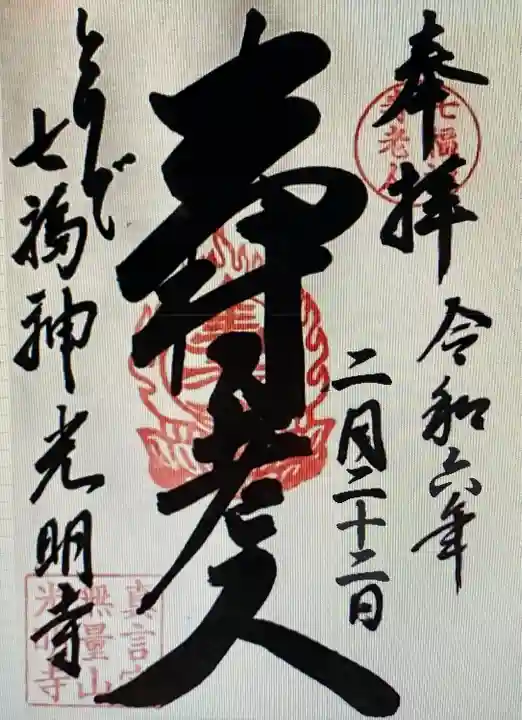 奉拝
七福神
寿老人
令和六年
二月二十二日
寿老人
とりで
七福神光明寺
真言宗
無量山
光明寺